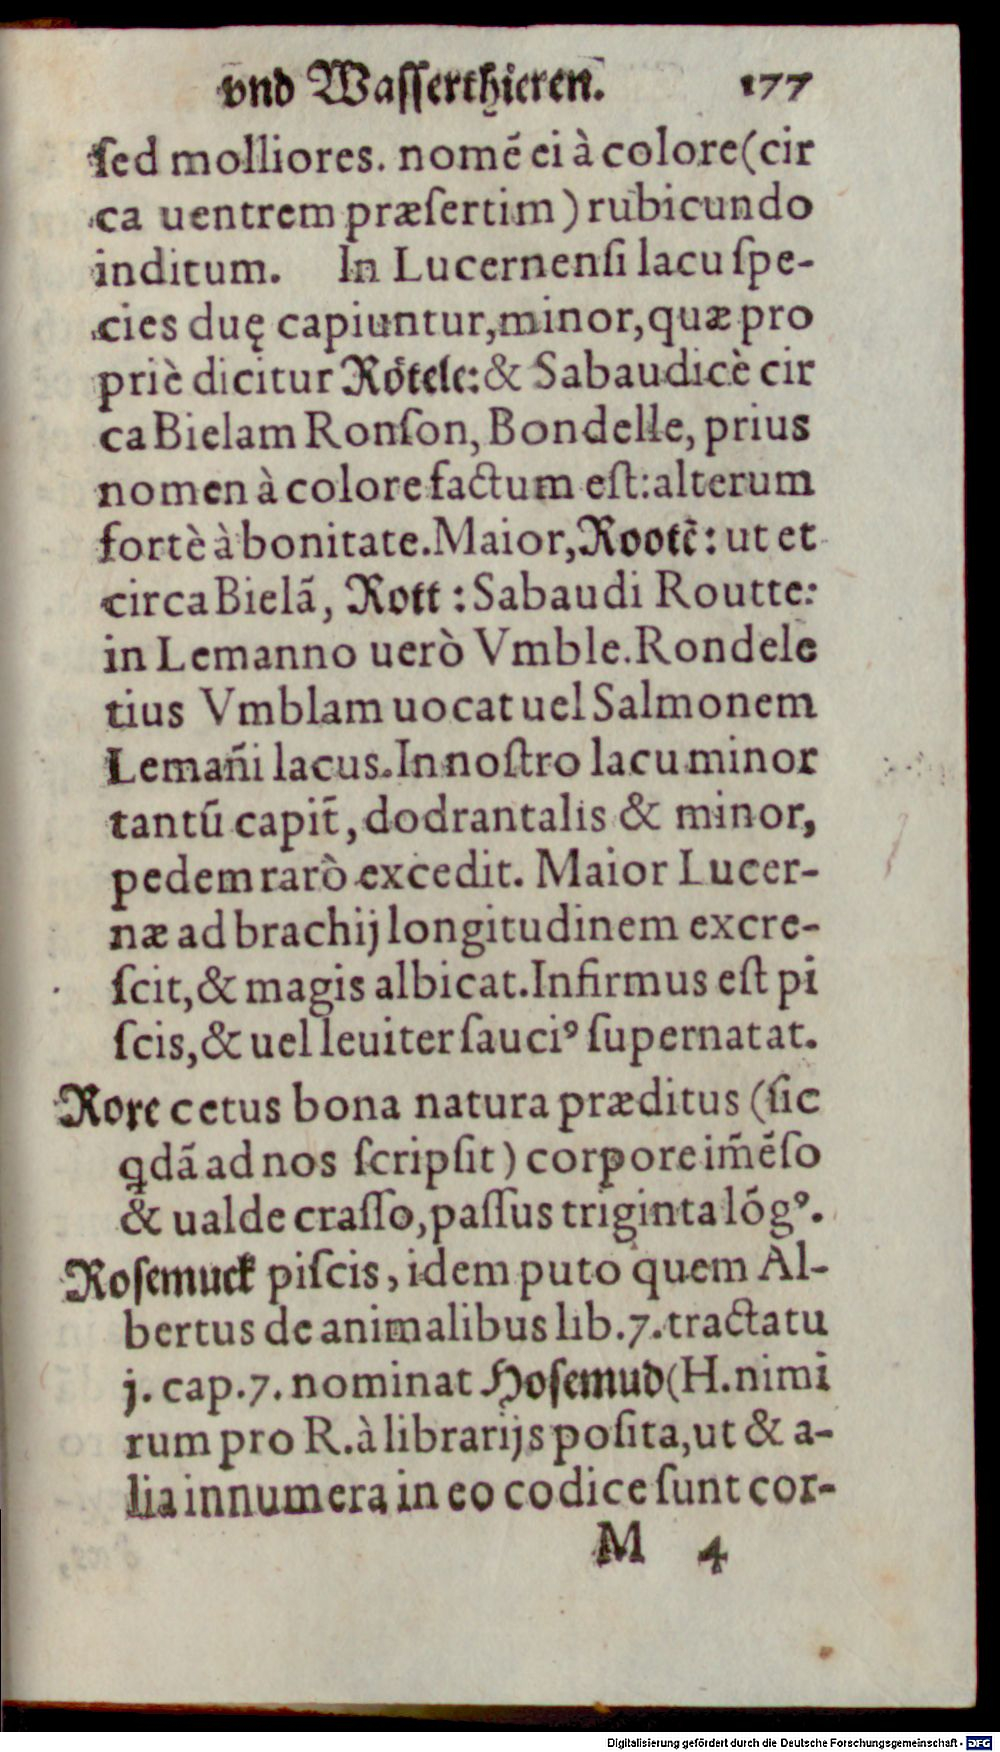 vnd Wasserthieren. 177
ſed molliores. nomē ei à colore(cir
ca uentrem præſertim) rubicundo
inditum. In Lucernenſi lacu ſpe-
cies duę capiuntur,minor,quæ pro
priè dicitur Rötele:& Sabaudicè cir
ca Bielam Ronſon, Bondelle, prius
nomen à colore factum eſt:alterum
fortè à bonitate.Maior,Rootē: ut et
circa Bielā, Rott : Sabaudi Routte:
in Lemanno uerò Vmble.Rondele
tius Vmblam uocat uel Salmonem
Lemañi lacus.In noſtro lacu minor
tantū capit̃, dodrantalis & minor,
pedem rarò excedit. Maior Lucer-
næ ad brachij longitudinem excre-
ſcit,& magis albicat.Infirmus eſt pi
ſcis,& uel leuiter ſauciꝰ ſupernatat.
Rore cetus bona natura præditus (ſic
qdā ad nos ſcripſit) corpore im̃ēſo
& ualde craſſo,paſſus triginta lōgꝰ.
Roſemuck piſcis, idem puto quem Al-
bertus de animalibus lib.7.tractatu
j. cap.7. nominat Hoſemud(H.nimi
rum pro R.à librarijs poſita,ut & a-
lia innumera in eo codice ſunt cor-
M 4
Digitalisierung gefördert durch die Deutsche Forschungsgemeinschaft - DFG